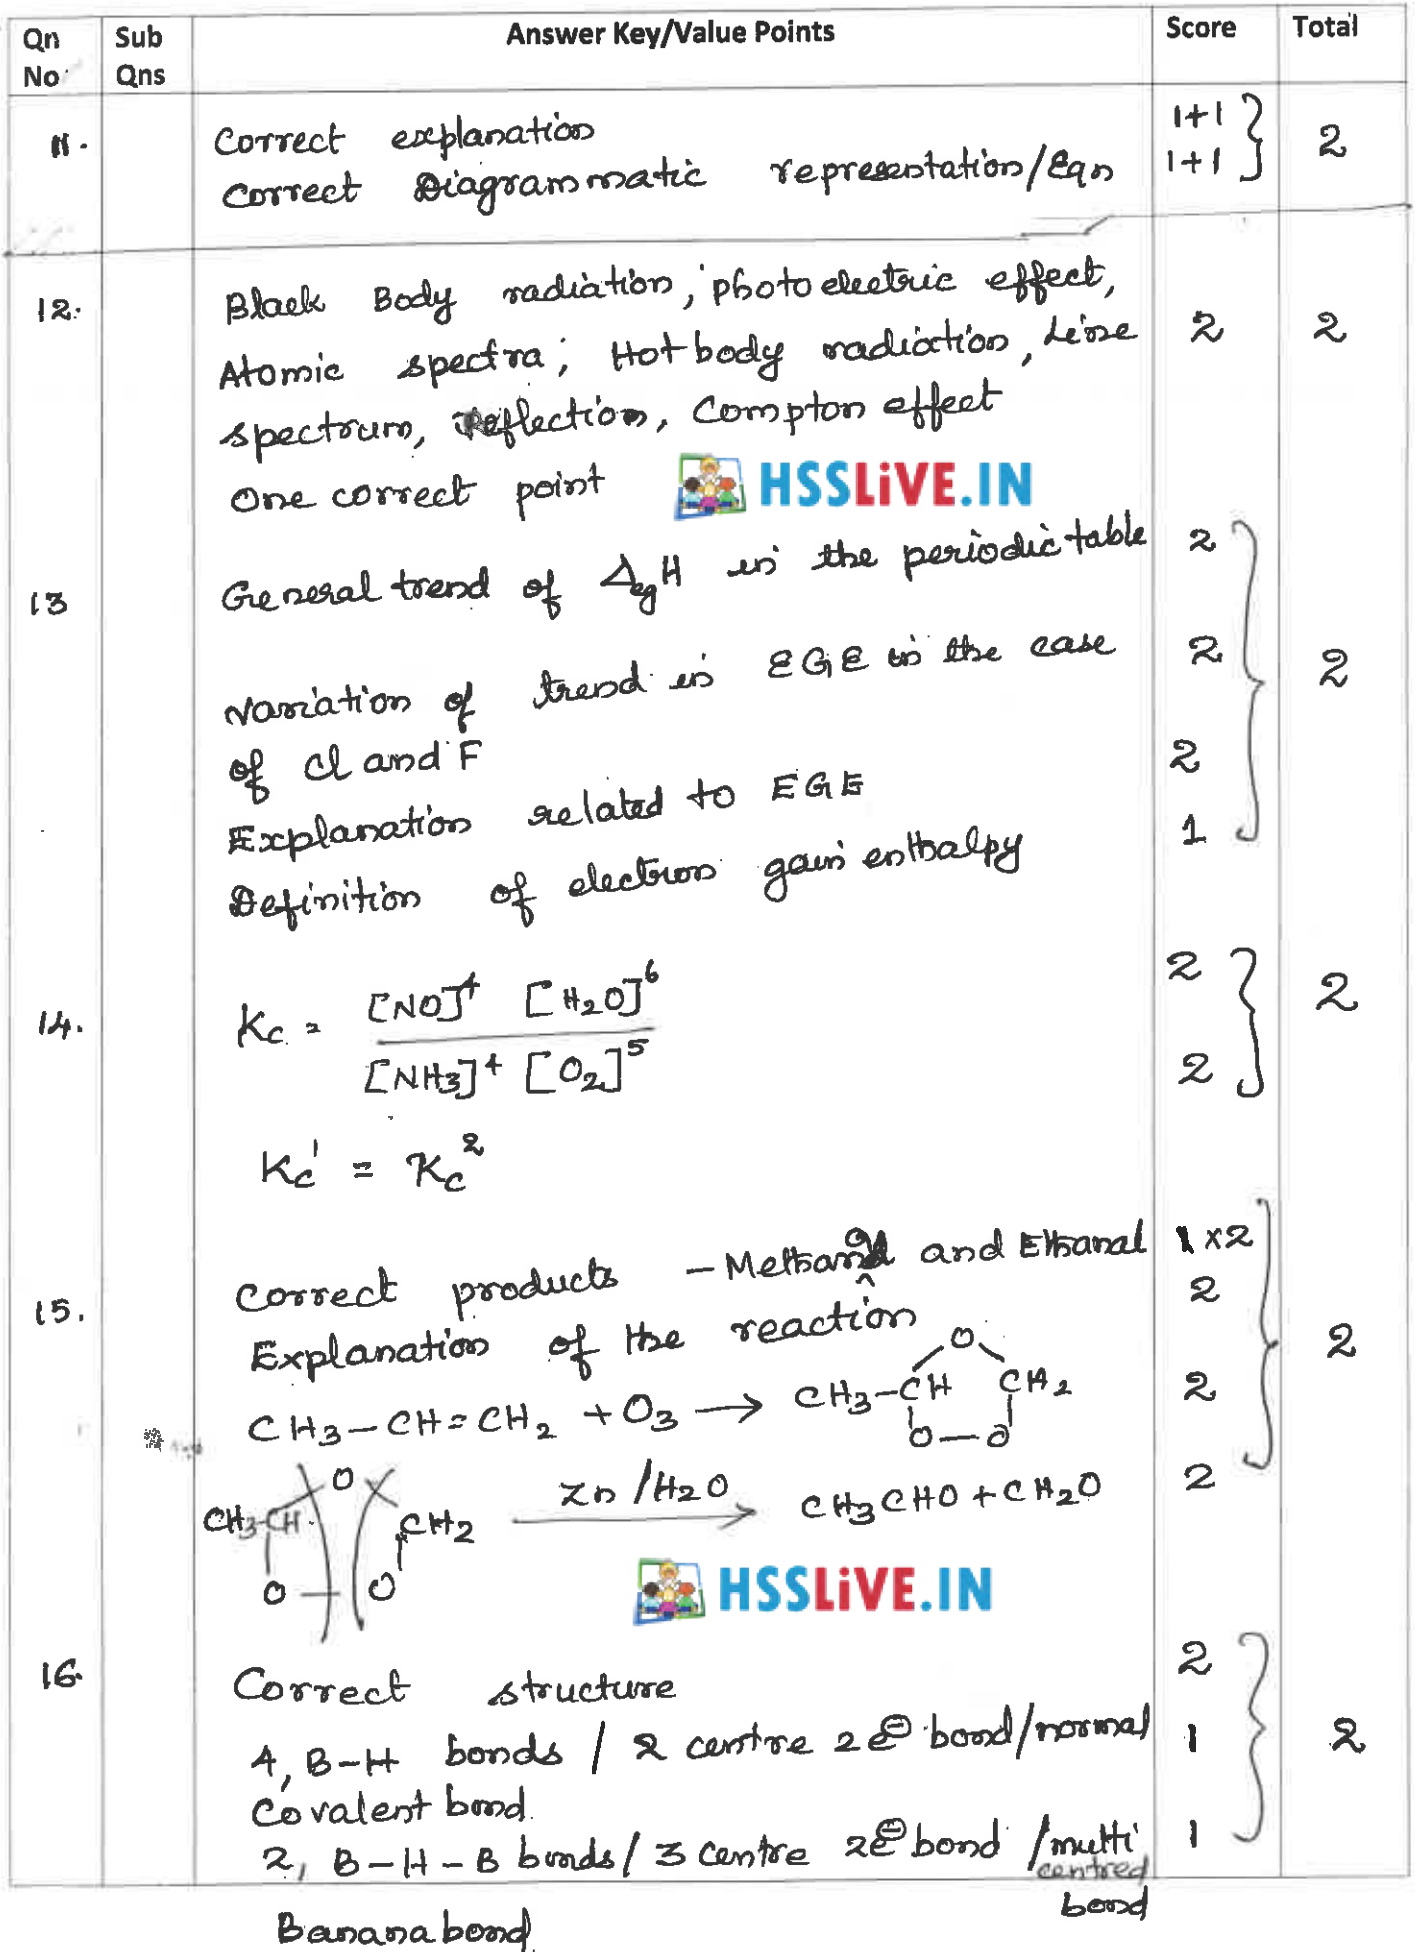 Qn No Sub Qns Answer Key/Value Points Score Total
11. Correct explanation 1+1 2
Correct Diagrammatic representation/Eqn 1+1
12. Black Body radiation, photo electric effect,
Atomic spectra; Hot body radiation, Line 2 2
spectrum, Reflection, Compton effect
One correct point HSSLiVE.IN
13 General trend of ΔegH in the periodic table 2
Variation of trend in EGE in the case 2 2
of Cl and F
Explanation related to EGE 2
Definition of electron gain enthalpy 1
14. Kc = [NO]⁴ [H₂O]⁶ / [NH₃]⁴ [O₂]⁵ 2 2
2
Kc' = Kc²
15. Correct products – Methanal and Ethanal 1×2
Explanation of the reaction 2 2
CH₃–CH=CH₂ + O₃ → CH₃–CH O CH₂ O–O 2
CH₃–CH O CH₂ O–O Zn/H₂O → CH₃CHO + CH₂O 2
HSSLiVE.IN
16. Correct structure 2 2
4, B–H bonds / 2 centre 2e⊖ bond/normal 1
Covalent bond.
2, B–H–B bonds/ 3 centre 2e⊖ bond /multi 1
centred
bond
Banana bond